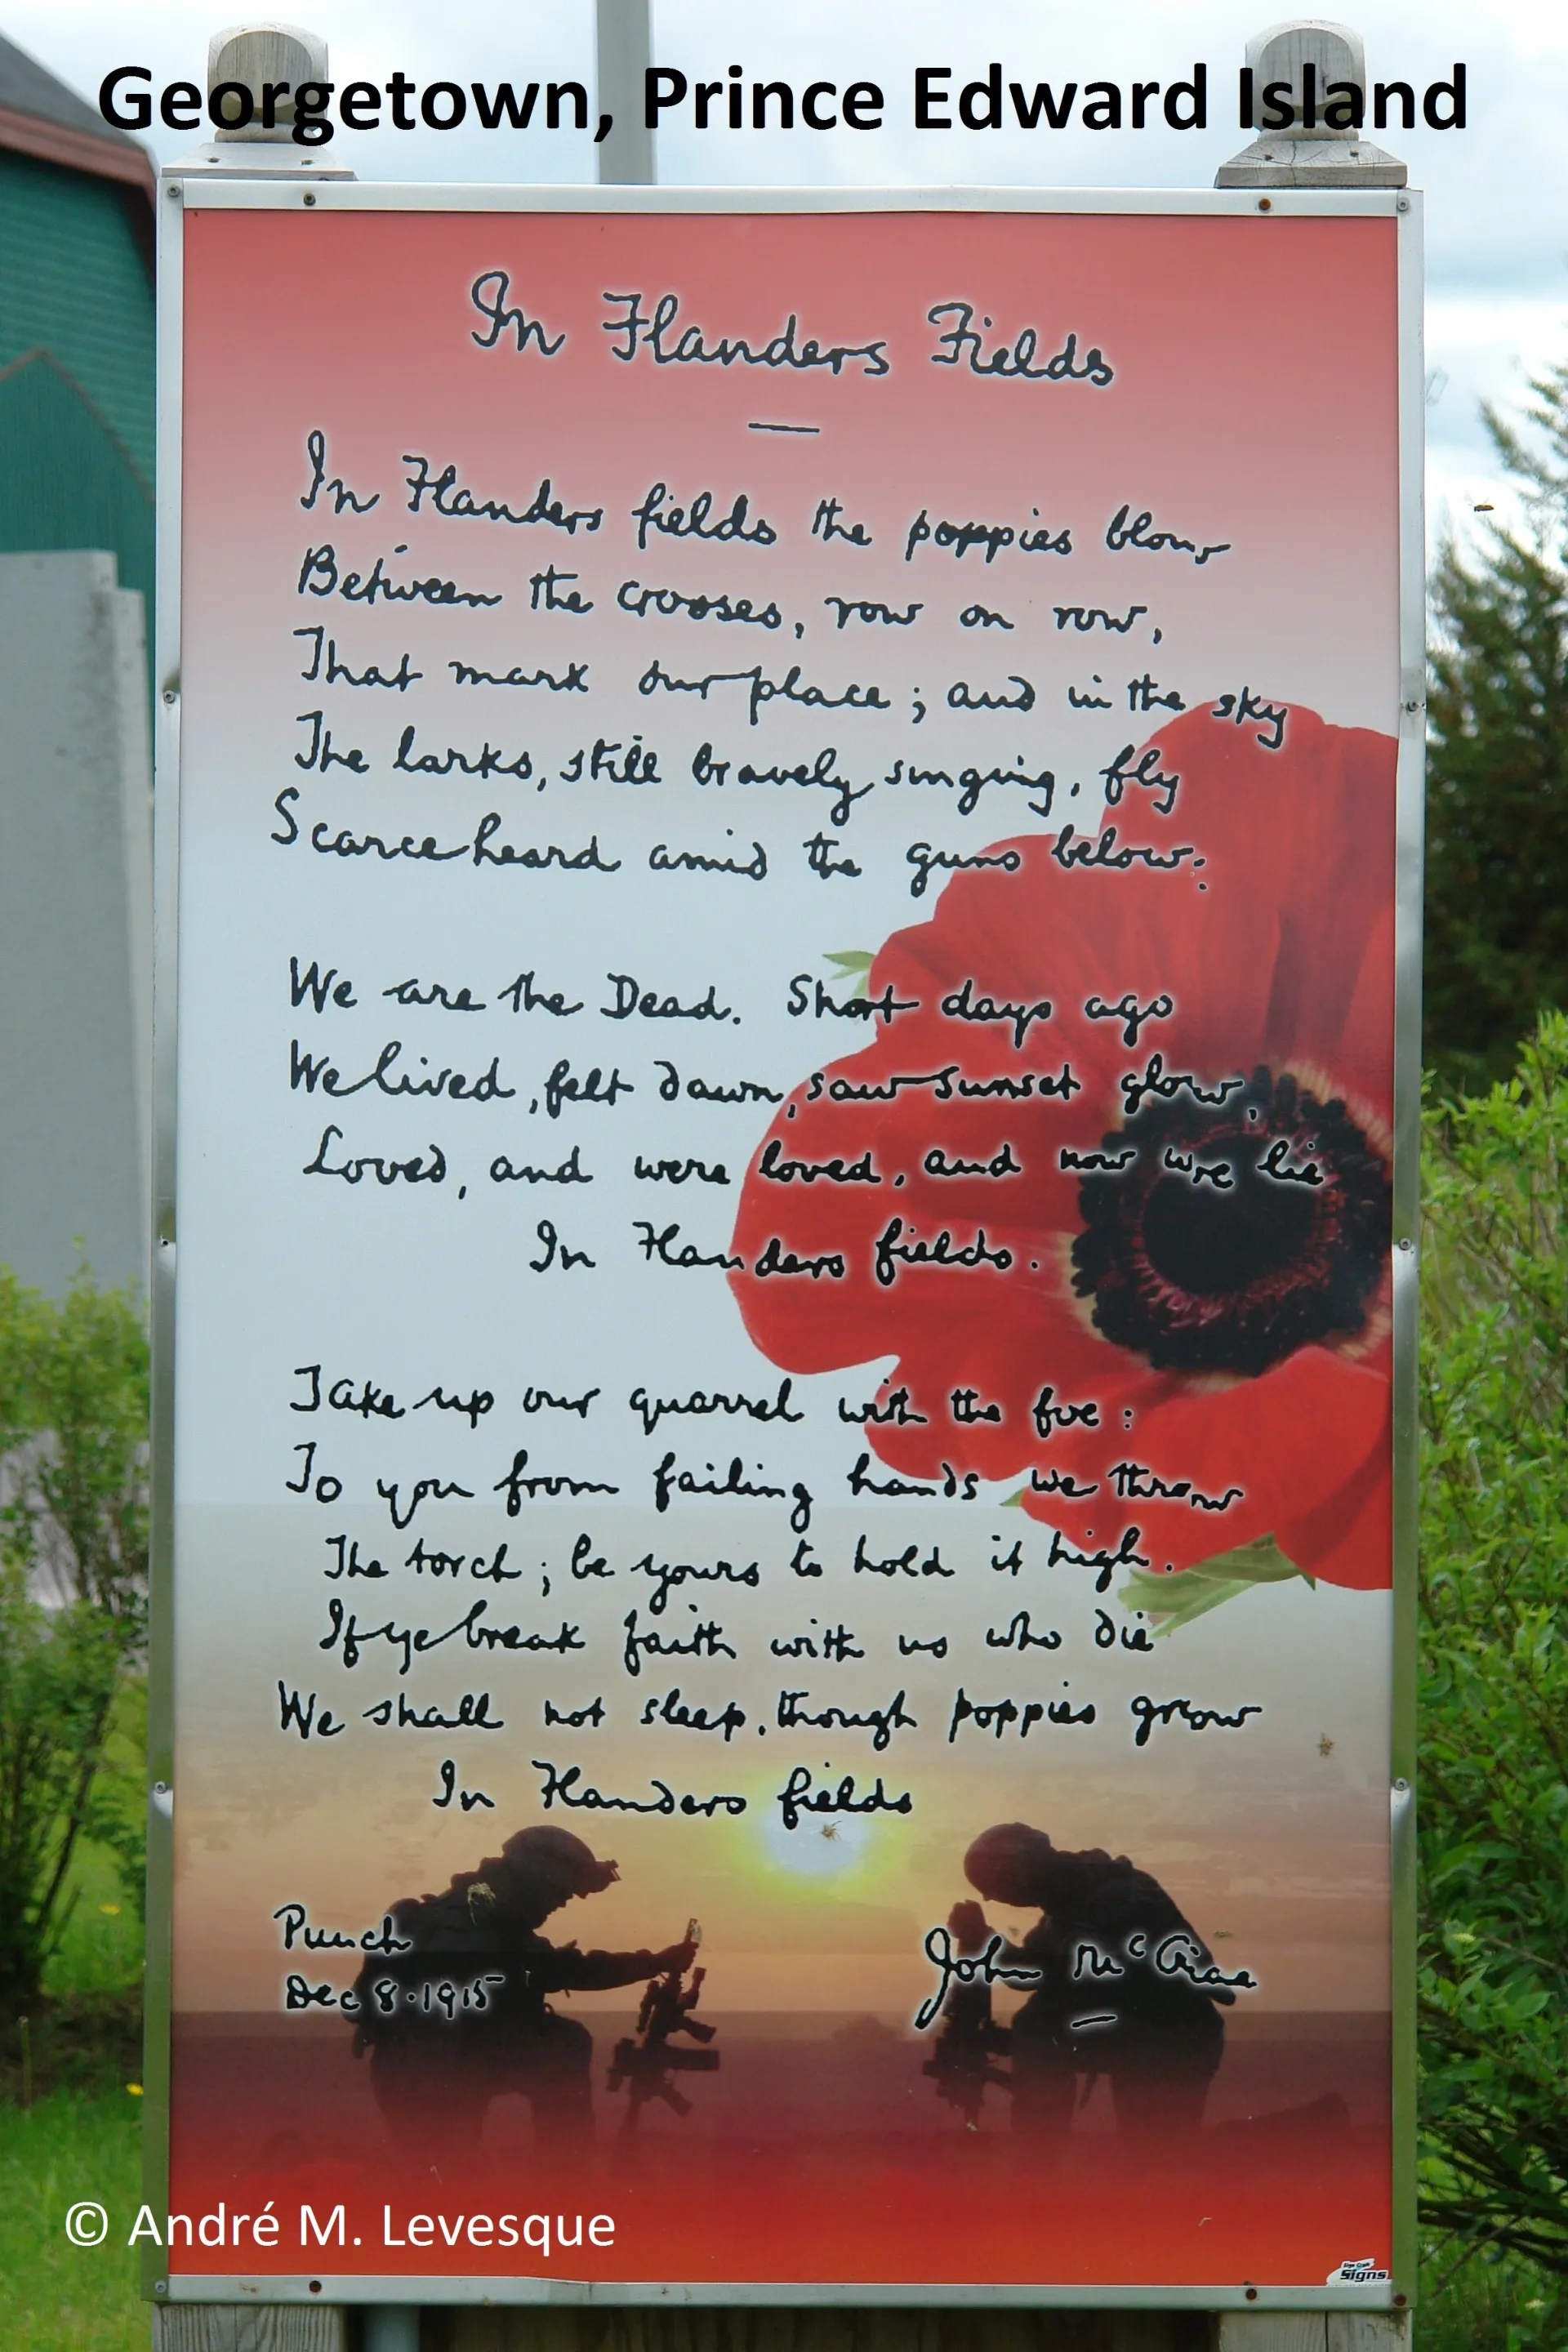 Georgetown, Prince Edward Island
In Flanders Fields
In Flanders fields the poppies blow
Between the crosses, row on row,
That mark our place; and in the sky
The larks, still bravely singing, fly
Scarce heard amid the guns below.
We are the Dead. Short days ago
We lived, felt dawn, saw sunset glow,
Loved, and were loved, and now we lie
In Flanders fields.
Take up our quarrel with the foe:
To you from failing hands we throw
The torch; be yours to hold it high.
If ye break faith with us who die
We shall not sleep, though poppies grow
In Flanders fields
Punch
Dec 8·1915
John McCrae
© André M. Levesque
Signs